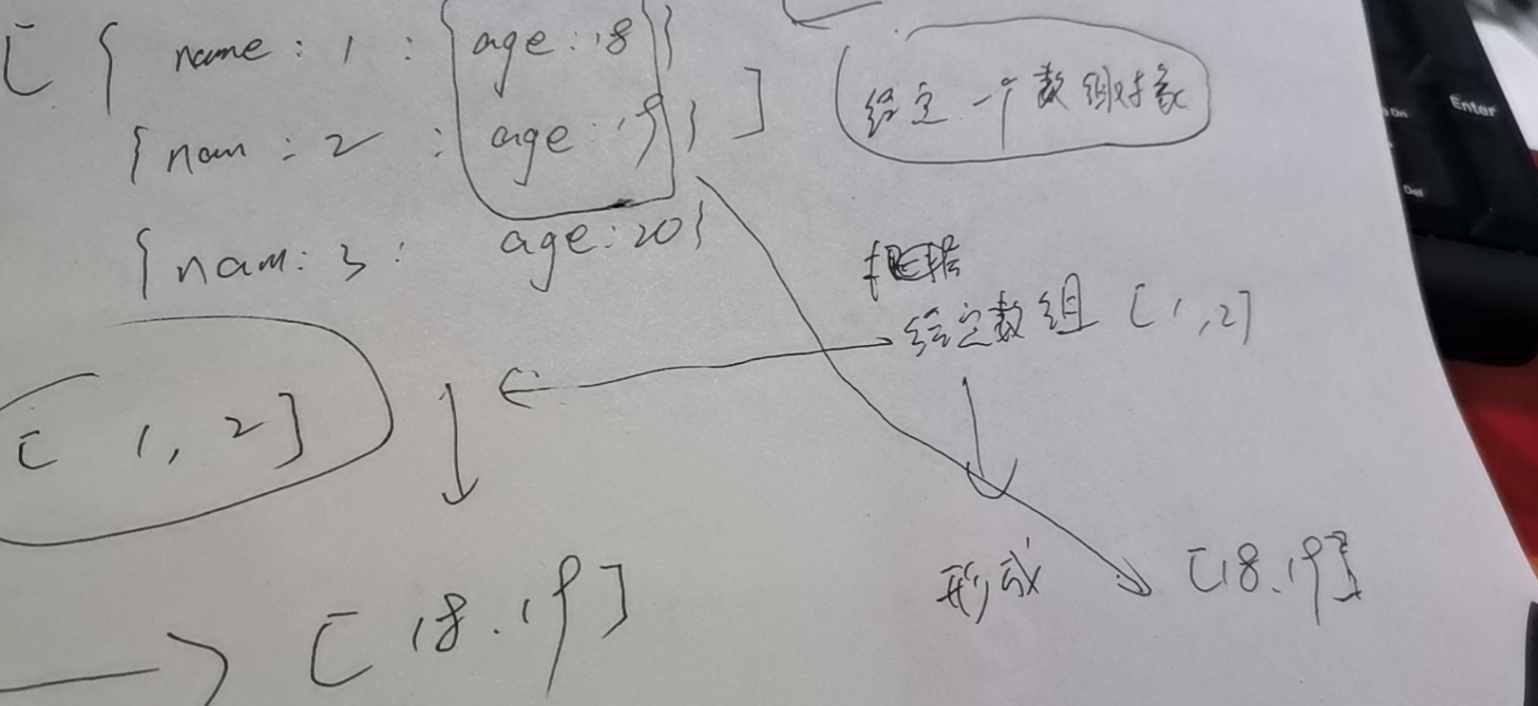 [ { name : 1 : { age : 18 } }
{ nam : 2 : age : 19 } ]
给定一个数组对象
{ nam : 3 : age : 20 }
根据
给定数组 [ 1 , 2 ]
[ 1 , 2 ]
形成 [ 18 . 19 ]
[ 18 . 19 ]
Enter
Del